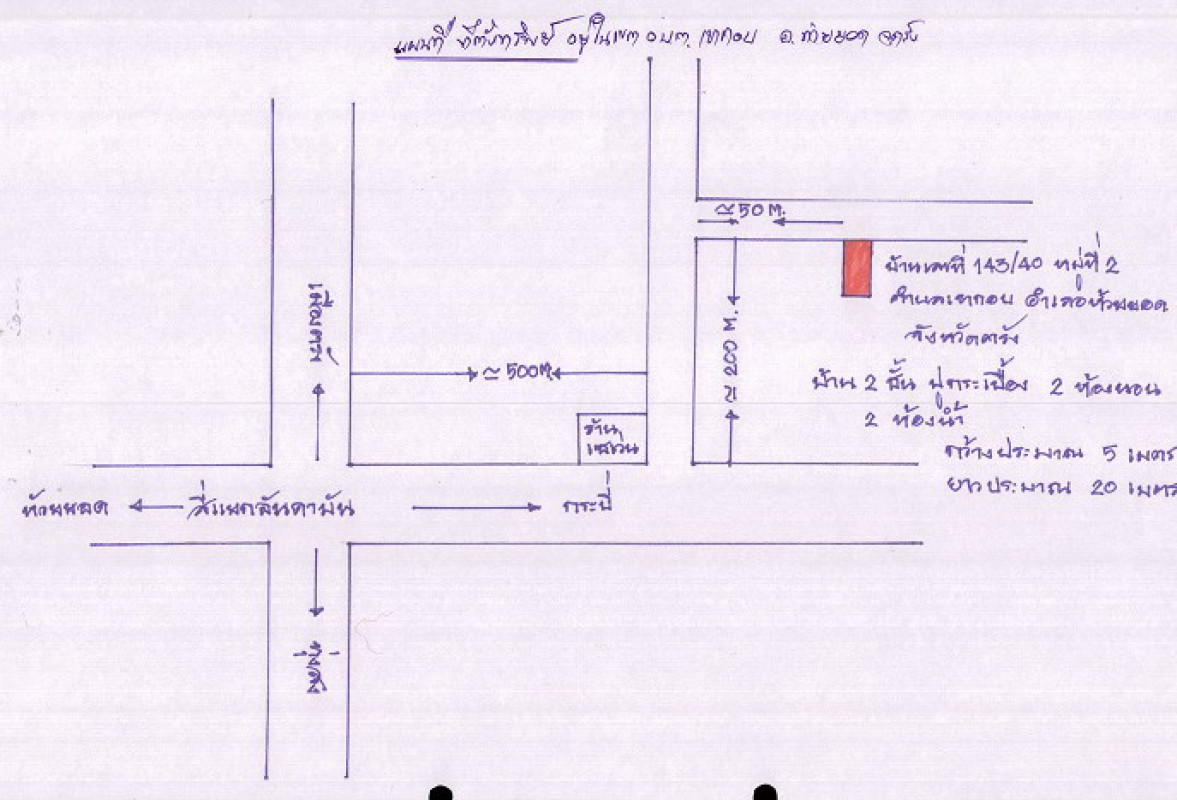 แผนที่ ที่ตั้งทรัพย์ อยู่ในเขต อบต. เขากอบ อ. ห้วยยอด จ.ตรัง
≃50 M.
บ้านเลขที่ 143/40 หมู่ที่ 2
ตำบลเขากอบ อำเภอห้วยยอด
จังหวัดตรัง
เมืองตรัง
≃ 200 M.
≃ 500 M.
บ้าน 2 ชั้น ปูกระเบื้อง 2 ห้องนอน
2 ห้องน้ำ
ร้าน
กว้างประมาณ 5 เมตร
ยาวประมาณ 20 เมตร
ห้วยยอด
สี่แยกอันดามัน
กระบี่
ทุ่งสง